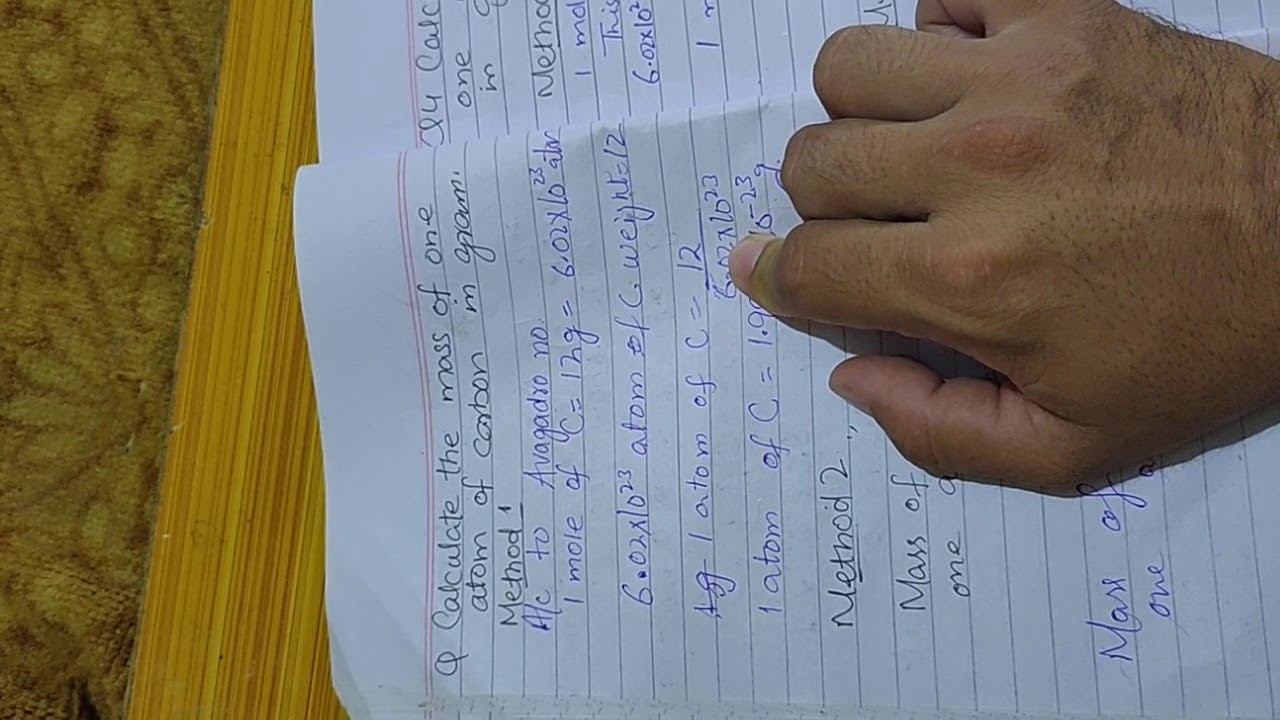 Q Calculate the mass of one
atom of carbon in gram.
Method 1
A/c to Avagadro no.
1 mole of C = 12g = 6.02x10²³ ator
6.02x10²³ atom of C. weight = 12
1 atom of C = 12
6.02x10²³
1 atom of C = 1.99 10⁻²³ g.
Method 2 ,,
Mass of
one a
Mass of
one a
Q4 Calc
one
in g
Method
1 mol
This
6.02x10²
1 m